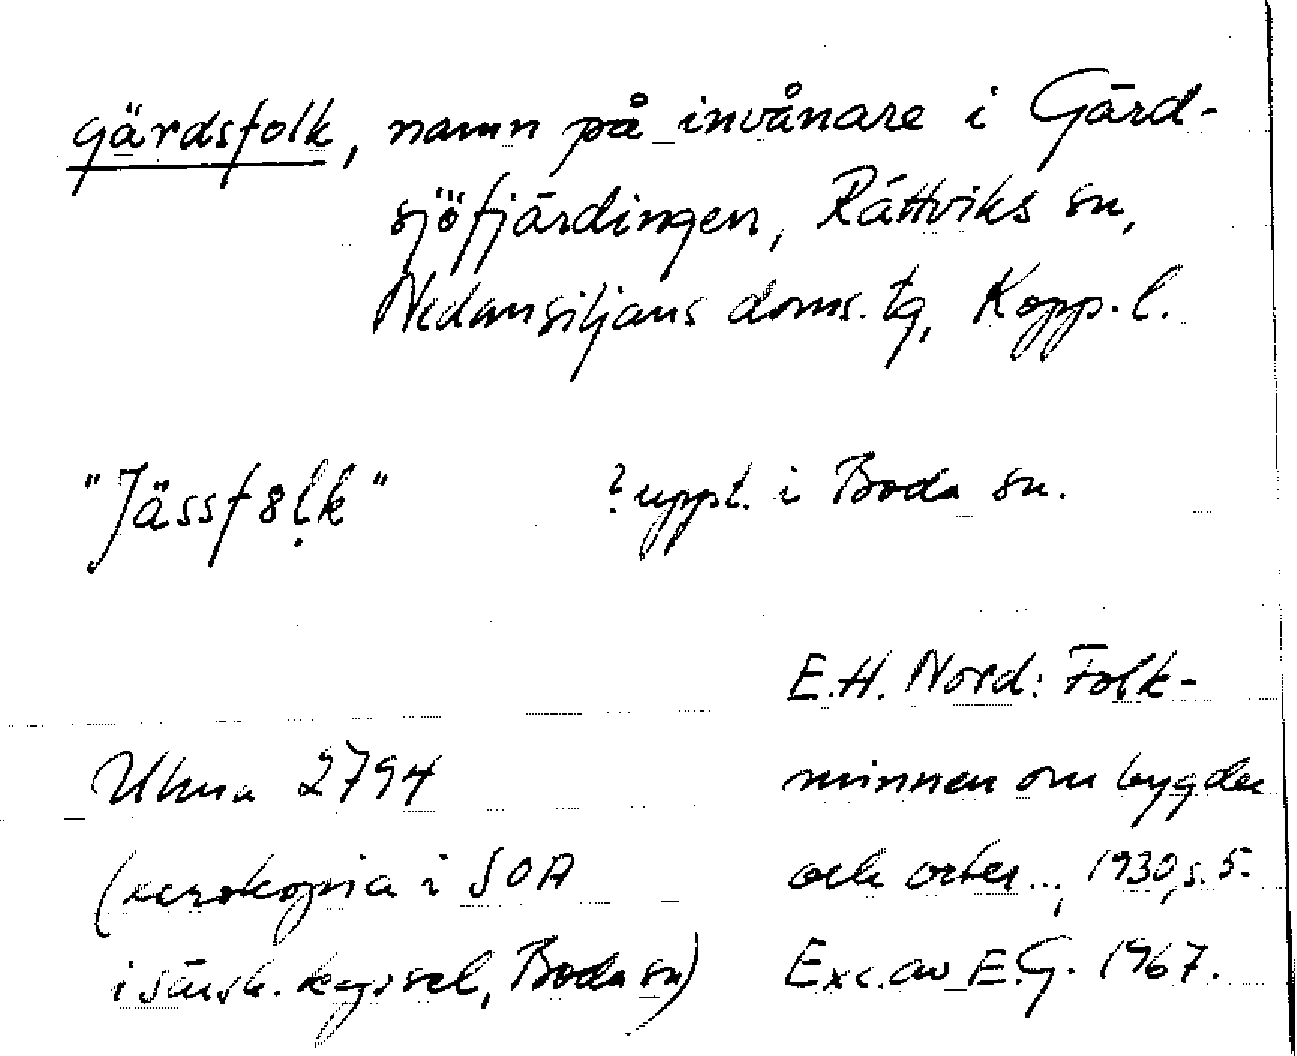 gärdsfolk, namn på invånare i Gärd-
sjöfjärdingen, Rättviks sn,
Nedansiljans doms. tg, Kopp. l.
"Jässfolk" ? uppt. i Boda sn.
E.H. Nord: Folk-
minnen om bygder
och orter..., 1930, s. 5.
Exc. av E.G. 1967.
Ulma 2794
(xerokopia i SOA
i särsk. kapsel, Boda sn)